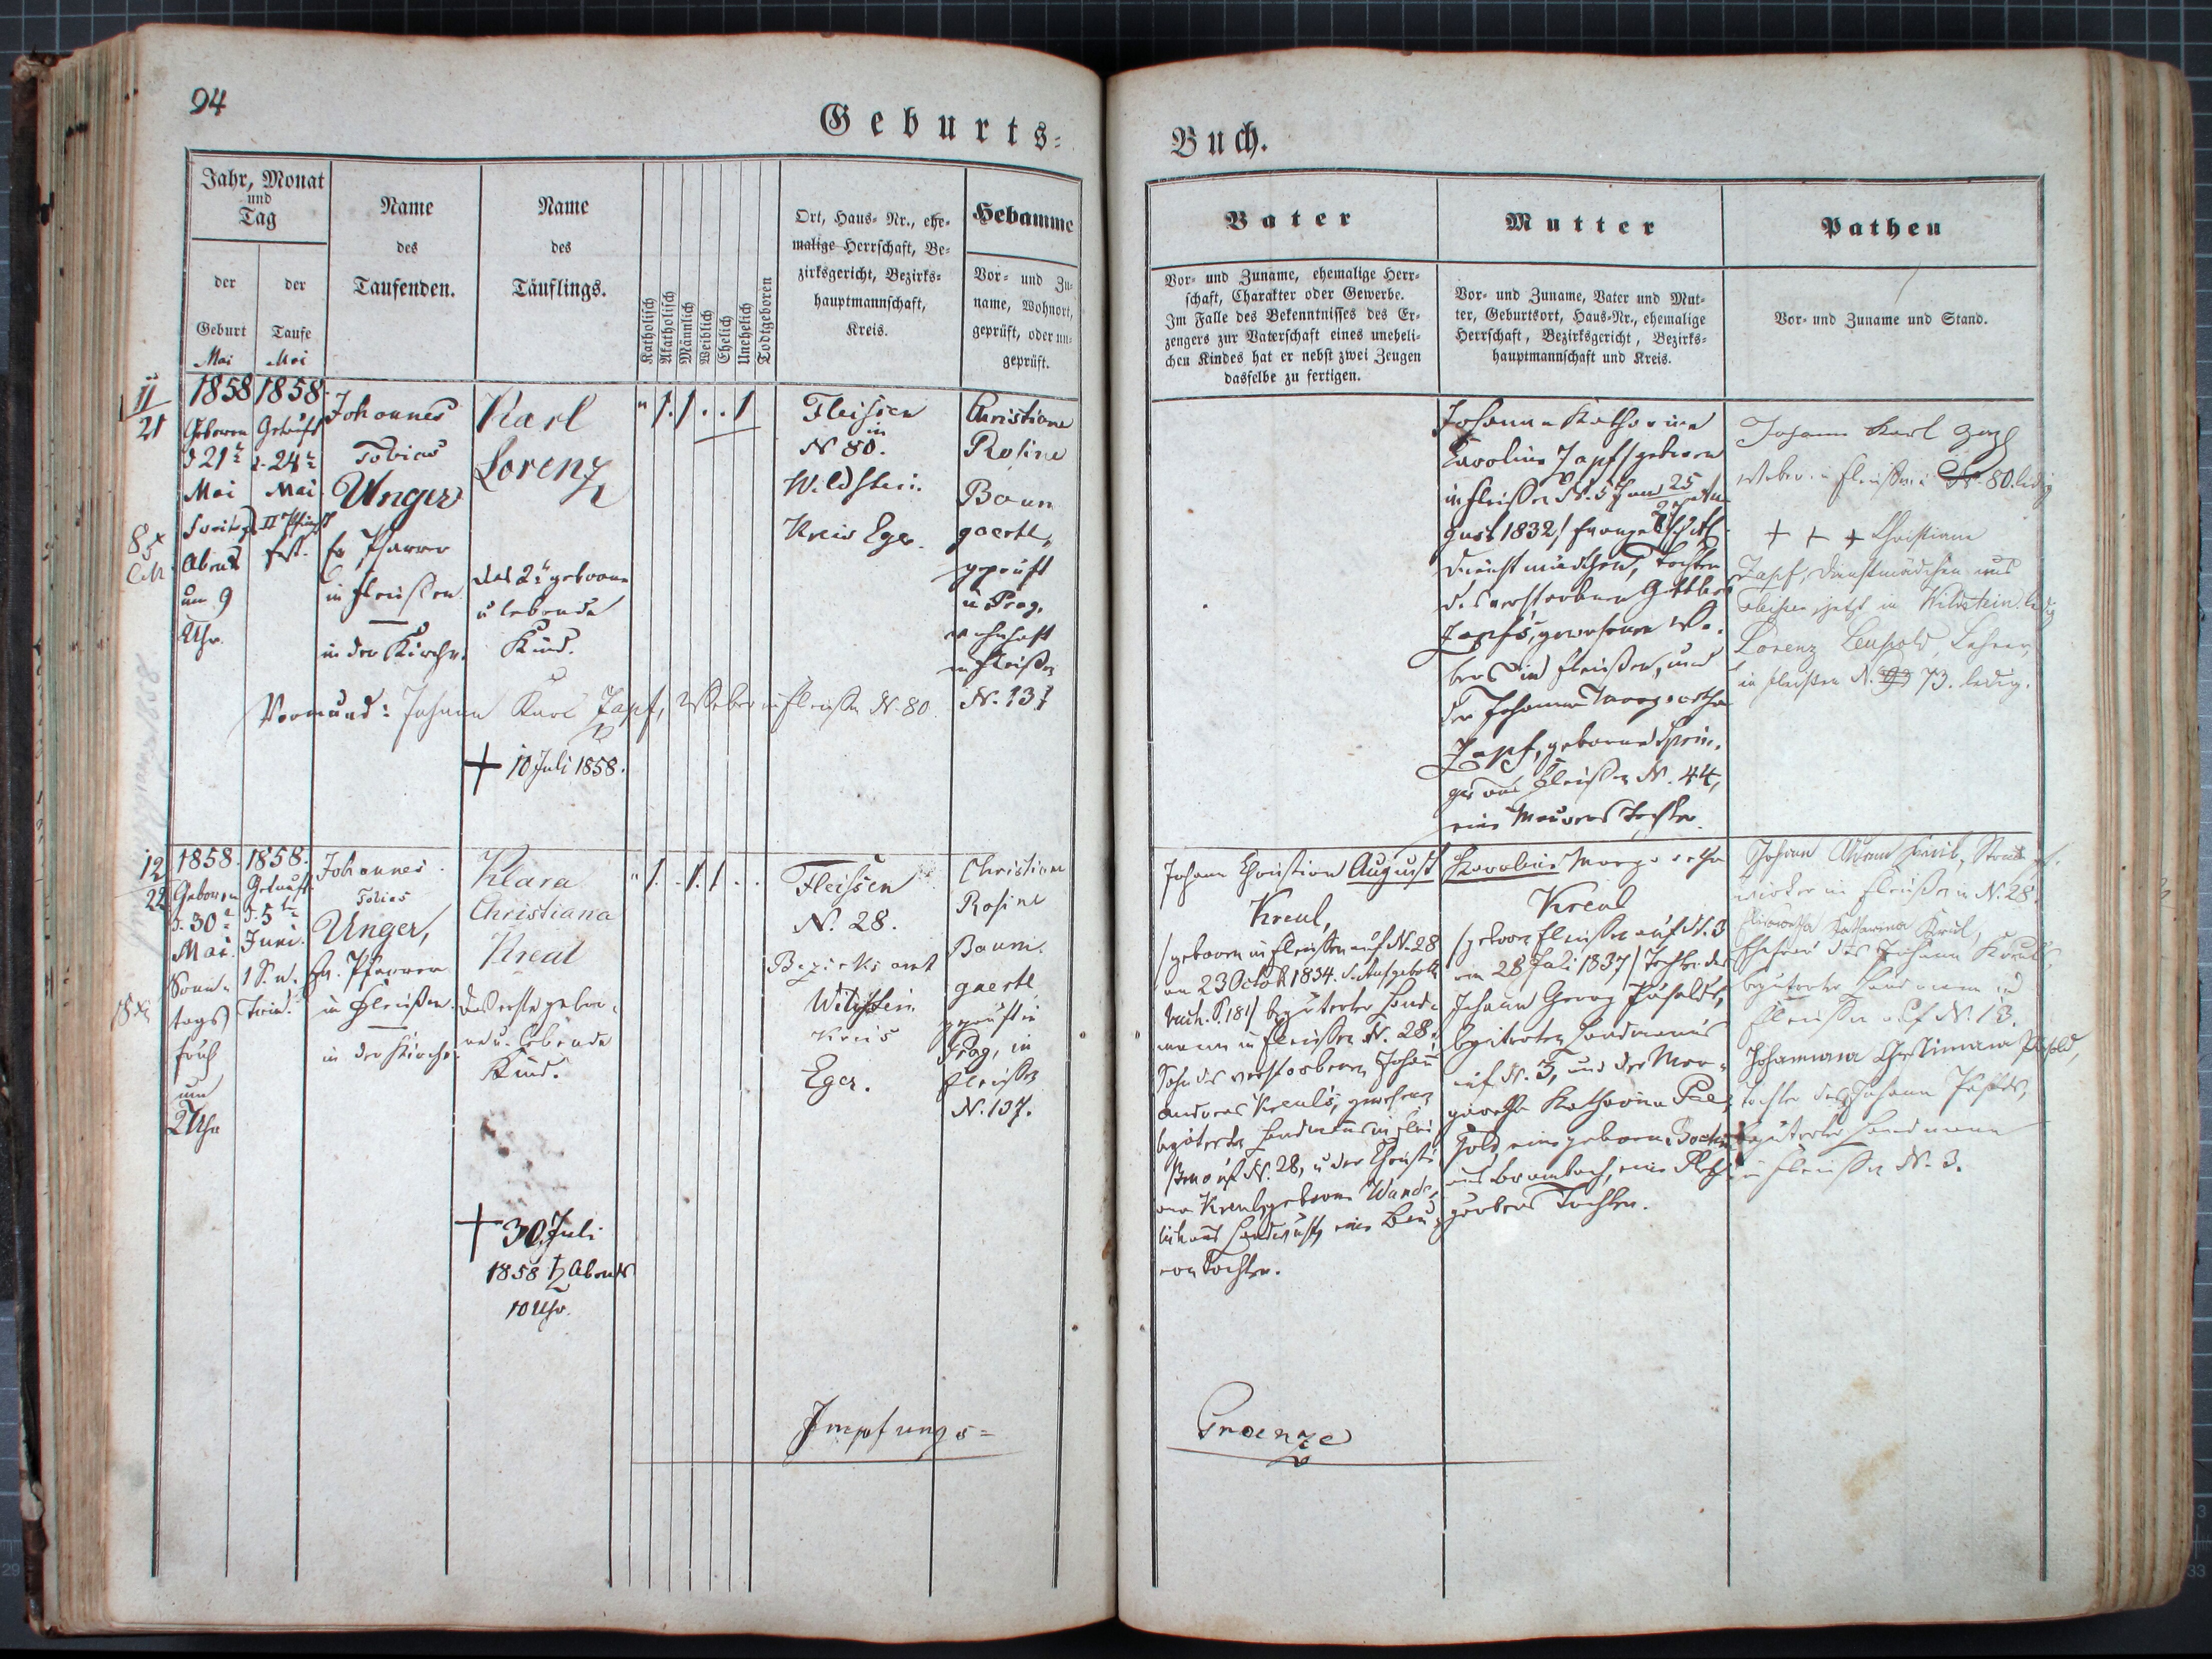 94
Geburts=
Buch.
Jahr, Monat
und
Tag
der
Geburt
Mai
der
Taufe
Mai
Name
des
Taufenden.
Name
des
Täuflings.
Katholisch
Akatholisch
Männlich
Weiblich
Ehelich
Unehelich
Todtgeboren
Ort, Haus- Nr., ehe-
malige Herrschaft, Be-
zirksgericht, Bezirks-
hauptmannschaft,
Kreis.
Hebamme
Vor- und Zu-
name, Wohnort,
geprüft, oder un-
geprüft.
Vater
Vor- und Zuname, ehemalige Herr-
schaft, Charakter oder Gewerbe.
Im Falle des Bekenntnisses des Er-
zeugers zur Vaterschaft eines uneheli-
chen Kindes hat er nebst zwei Zeugen
dasselbe zu fertigen.
Mutter
Vor- und Zuname, Vater und Mut-
ter, Geburtsort, Haus-Nr., ehemalige
Herrschaft, Bezirksgericht, Bezirks-
hauptmannschaft und Kreis.
Pathen
Vor- und Zuname und Stand.
11
21
1858
Geboren
d 21
Mai
Abends
um 9
Uhr.
1858.
Getauft
d. 24
Mai
II Pfingst
fest.
Johannes
Tobias
Unger
Pfarrer
in Fleißen
in der Kirche.
Karl
Lorenz
das 2. geborne
u lebende
Kind.
Fleissen
in
N 80.
Wildstein
Kreis Eger.
Christiane
Rosine
Baum
gaertl,
geprüft
u Prag,
wohnhaft
in Fleißen
N. 137
Vormund: Johann Karl Zapf, Weber in Fleißen N. 80.
+ 10 Juli 1858.
Johanna Katharina
Karolina Zapf / geboren
in Fleißen N. 5 25 Au
gust 1832 /
Dienstmädchen, Tochter
des verstorbenen
Zapf's, gewesenen We-
bers in Fleißen, und
der Johanna Margaretha
Zapf, geborne Sprin-
ger aus Fleißen N. 44,
eine Maurers Tochter.
Johann Karl Zapf
Weber in Fleißen N. 80. ledig
+ + + Christiana
Zapf, Dienstmädchen aus
Fleißen jetzt in Wildstein ledig
Lorenz Leupold, Lehrer,
in Fleißen N. 73. ledig.
12
22
1858.
Geboren
d. 30
Mai
Sonn-
tags
früh
um
2 Uhr
1858.
Getauft
d. 5
Juni.
1 S. n.
Trin.
Johannes
Tobias
Unger,
Pfarrer
in Fleißen.
in der Kirche.
Klara
Christiana
Kreul
das erste gebor-
ne u. lebende
Kind.
+ 30. Juli
1858 Abends
10 Uhr.
Fleissen
N. 28.
Bezirksamt
Wildstein
Kreis
Eger.
Christiane
Rosine
Baum-
gaertl
geprüft in
Prag, in
Fleißen
N. 137.
Johann Christian August
Kreul,
/ geboren in Fleißen auf N. 28
am 23 Octob 1834.
buch. S. 181 / begüterter Land-
mann in Fleißen N. 28.
Sohn des verstorbenen Johann
Andreas Kreul's, gewesenen
begüterten Landmanns in Flei
ßen auf N. 28, u. der Christi
ana Kreul, geborne
aus Landwüst, eine
Tochter.
Karolina Margaretha
Kreul
/ geboren Fleißen auf N. 3
am 28 Juli 1837 / Tochter des
Johann Georg
begüterten Landmanns
auf N. 3, und der Mar-
garetha Katharina
eine geborne
aus Brambach, eine
gerbers Tochter.
Johann Adam
wirker in Fleißen N. 28.
Katharina Kreul,
Ehefrau des Johann Kreul,
begüterter Landmann in
Fleißen auf N. 13.
Johanna Christiana
Tochter des Johann
begüterter Landmann
in Fleißen N. 3.
Impfungs=
Graenze